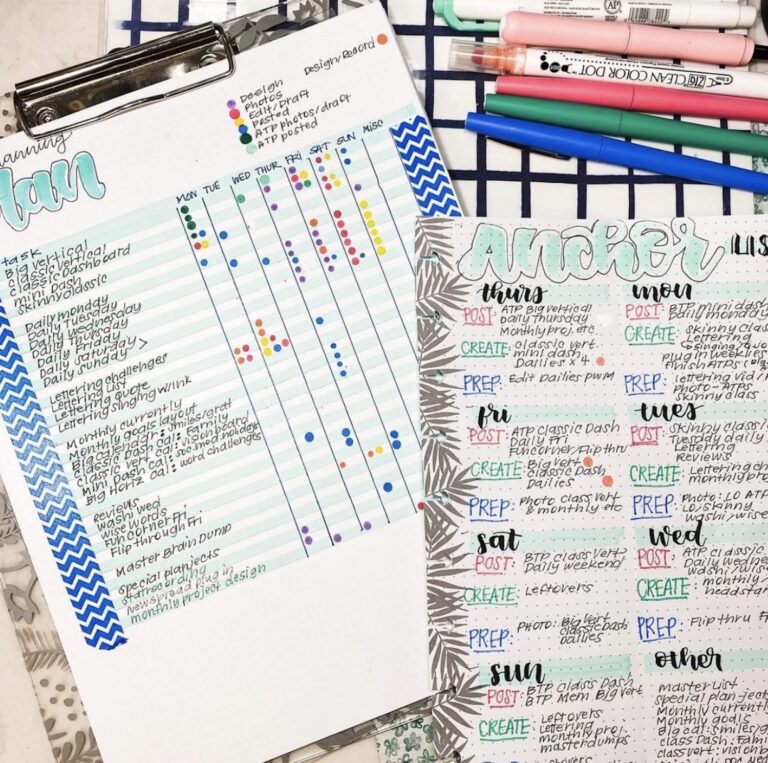 Design/Record
Design
Photos
Edit/Draft
Posted
ATP photos/draft
ATP posted
Planning
Plan
MON TUE WED THUR FRI SAT SUN MISC
task
Big Vertical
Classic Vertical
Classic Dashboard
mini Dash
Skinny Classic
Daily Monday
Daily Tuesday
Daily Wednesday
Daily Thursday
Daily Friday
Daily Saturday >
Daily Sunday
Lettering challenges
Lettering List
Lettering quote
Lettering singing w/ink
Monthly currently
Monthly goals layout
Big calendar: smiles/grat
Classic Dash cal: Family
Classic vert cal: vision board/
Mini Dash cal: soc med/holidays
Big Hortz cal: word challenges
Reviews
washi wed
wise words
Fun corner Fri
Flip through Fri
Master Brain Dump
special planjects
starboarding
Newspread plug in
monthly project design
ZIG CLEAN COLOR DOT
Anchor LIS
thurs
POST: ATP Big vertical
Daily Thursday
Monthly proj. etc.
CREATE: classic vert
mini dash
Dailies x 4
PREP: Edit Dailies PWM
fri
POST: ATP classic Dash
Daily Fri
Fun corner/Flip thru
CREATE: Big vert
classic Dash
Dailies
PREP: Photo class vert
& monthly etc
sat
POST: BTP class Vert/
Daily weekend/
CREATE: Leftovers
PREP: PHOTO: Big vert
classic Dash
Dailies
sun
POST: BTP Classic Dash
BTP Mem Big vert
CREATE: Leftovers
Lettering
monthly proj.
master dumps
mon
POST: BTP mini dash
Daily monday
CREATE: Skinny class
Lettering
plug in weeklies
Finish ATPs (Big
PREP: lettering vid/
photo - ATPs
skinny class
tues
POST: Skinny classic
Tuesday daily
Lettering
Reviews
CREATE: Lettering ch
monthly proj
PREP: Photo: LO ATP
LO/skinny
washi/wise
wed
POST: ATP classic
Daily Wedne
washi/wise
CREATE: monthly/
head start
PREP: Flip thru Fr
other
master List
special plan-jects
Monthly currently
Monthly goals
Big cal: smiles/g
class Dash: Fami
class vert: vision b